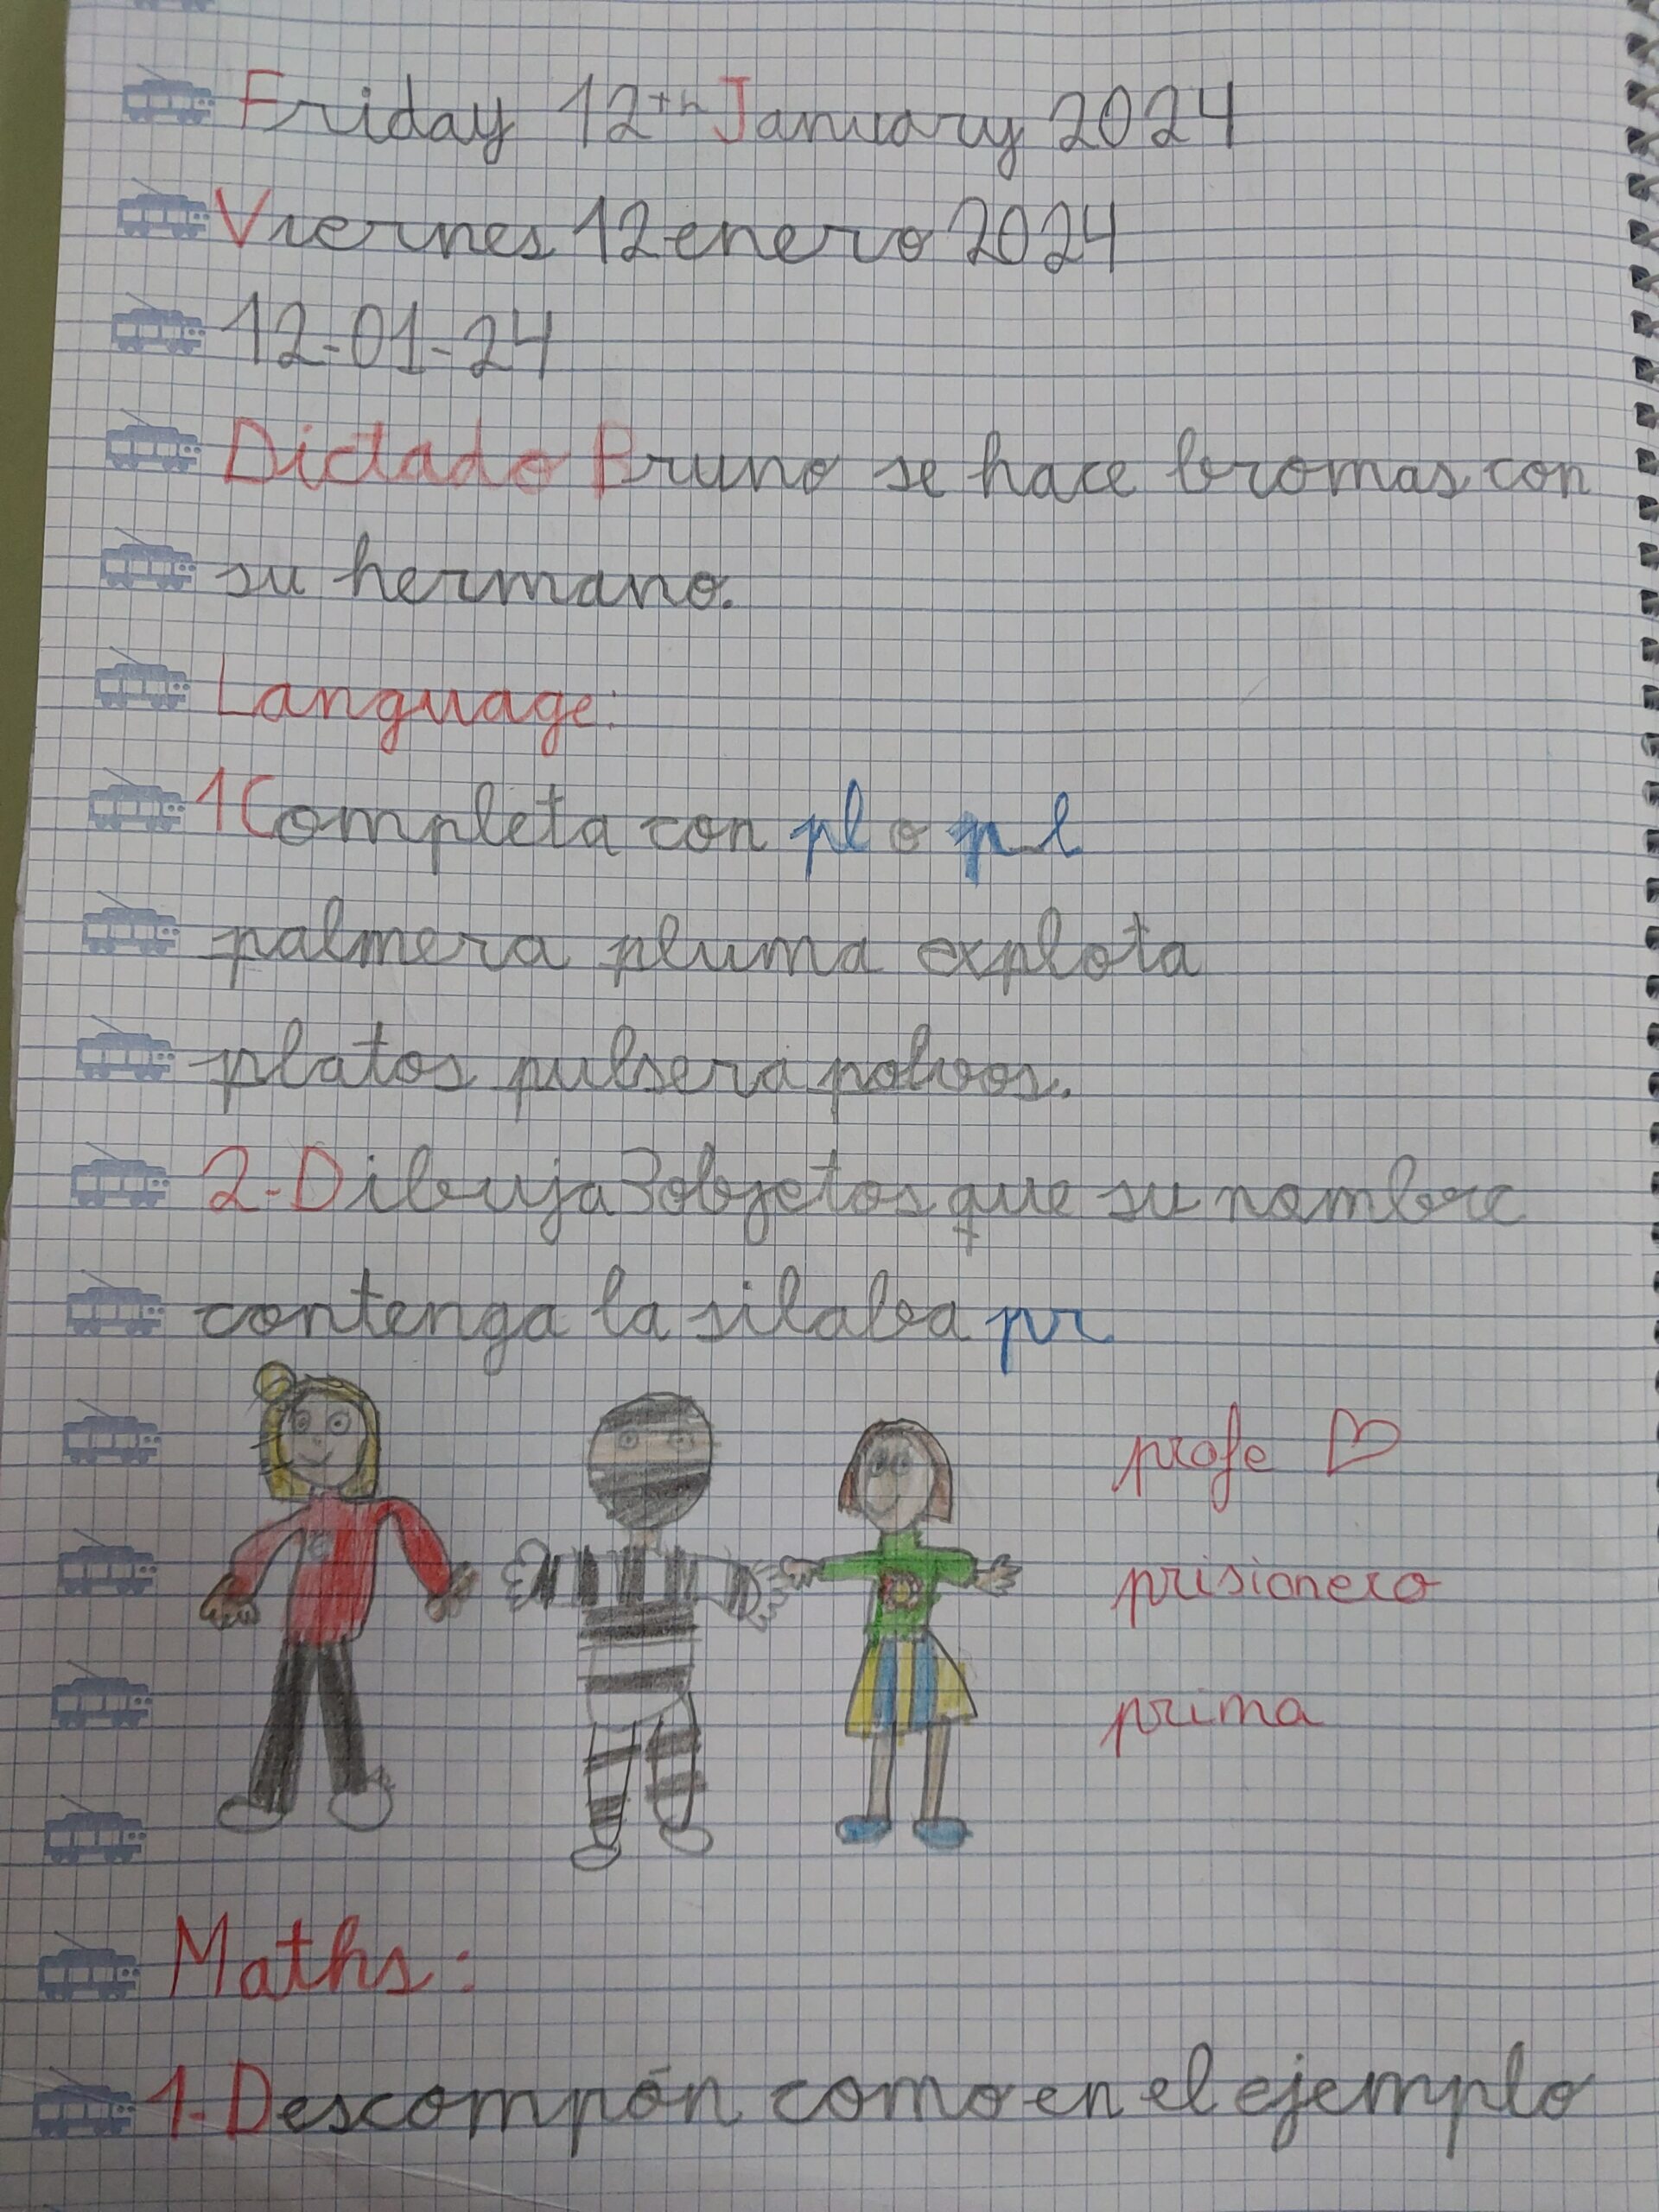 Friday 12th January 2024
Viernes 12 enero 2024
12-01-24
Dictado Bruno se hace bromas con
su hermano.
Language:
1 Completa con pl o p-l
palmera pluma explota
platos pulsera polvos.
2-Dibuja 3 objetos que su nombre
contenga la silaba pr
profe ♡
prisionero
prima
Maths:
1-Descompón como en el ejemplo